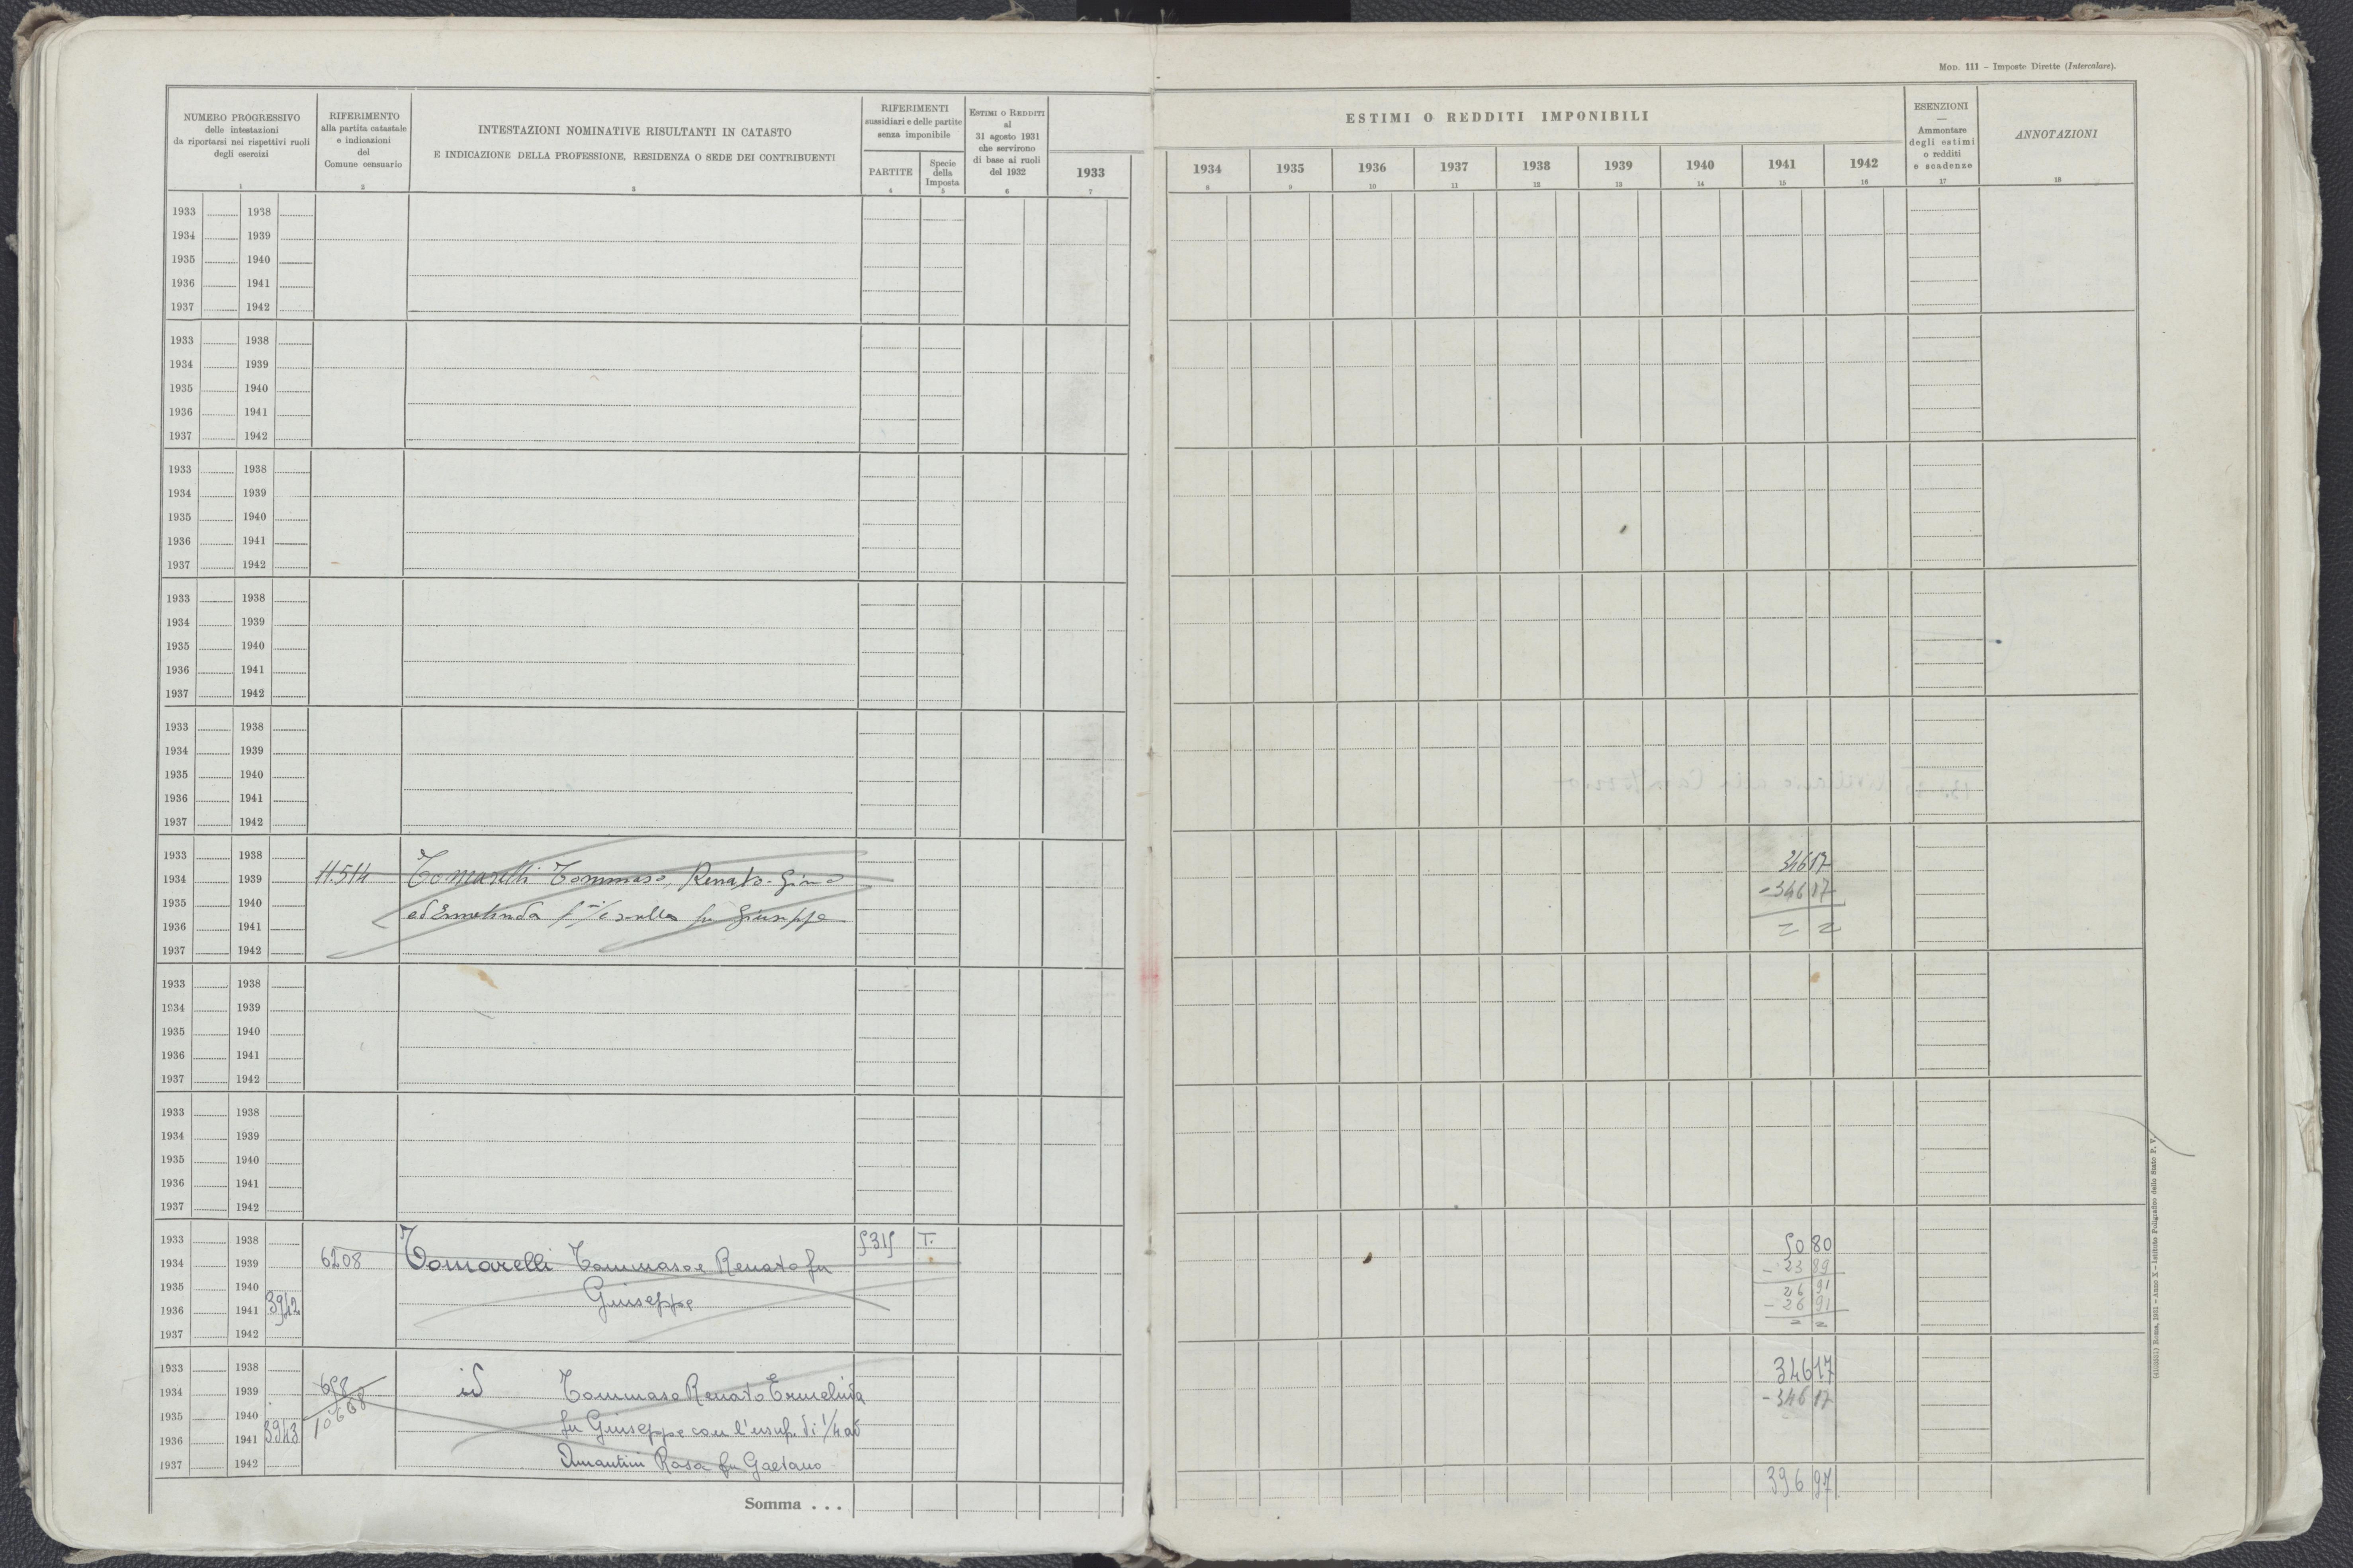 Mod. 111 - Imposte Dirette (Intercalare).
NUMERO PROGRESSIVO
delle intestazioni
da riportarsi nei rispettivi ruoli
degli esercizi
1
RIFERIMENTO
alla partita catastale
e indicazioni
del
Comune censuario
2
INTESTAZIONI NOMINATIVE RISULTANTI IN CATASTO
E INDICAZIONE DELLA PROFESSIONE, RESIDENZA O SEDE DEI CONTRIBUENTI
3
RIFERIMENTI
sussidiari e delle partite
senza imponibile
PARTITE
4
Specie
della
Imposta
5
ESTIMI O REDDITI
al
31 agosto 1931
che servirono
di base ai ruoli
del 1932
6
1933
7
ESTIMI O REDDITI IMPONIBILI
1934 1935 1936 1937 1938 1939 1940 1941 1942
8 9 10 11 12 13 14 15 16
ESENZIONI
Ammontare
degli estimi
o redditi
e scadenze
17
ANNOTAZIONI
18
1933 1938
1934 1939
1935 1940
1936 1941
1937 1942
1933 1938
1934 1939
1935 1940
1936 1941
1937 1942
1933 1938
1934 1939
1935 1940
1936 1941
1937 1942
1933 1938
1934 1939
1935 1940
1936 1941
1937 1942
1933 1938
1934 1939
1935 1940
1936 1941
1937 1942
1933 1938 346 17
1934 1939 11514 Tomarelli Tommaso, Renato-Gino - 346 17
1935 1940 ed Ermelinda fu Giuseppe
1936 1941 = =
1937 1942
1933 1938
1934 1939
1935 1940
1936 1941
1937 1942
1933 1938
1934 1939
1935 1940
1936 1941
1937 1942
1933 1938 5315 T. 50 80
1934 1939 6208 Tomarelli Tommaso e Renato fu - 23 89
1935 1940 Giuseppe 26 91
1936 1941 3942 - 26 91
1937 1942 = =
1933 1938 346 17
1934 1939 id Tommaso Renato Ermelinda - 346 17
1935 1940 10668 fu Giuseppe con l'usuf. di 1/4 ad
1936 1941 3943
1937 1942 Amantini Rosa fu Gaetano
Somma . . . 396 97
(4102681) Roma, 1931 - Anno X - Istituto Poligrafico dello Stato P. V.